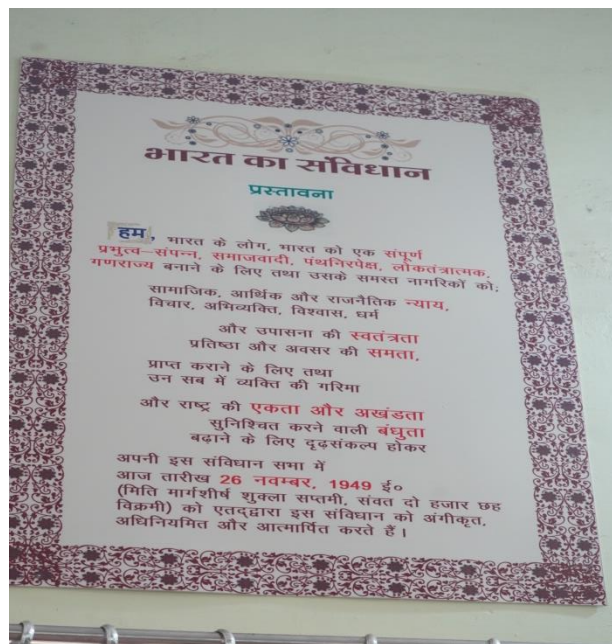 भारत का संविधान
प्रस्तावना
हम, भारत के लोग, भारत को एक संपूर्ण
प्रभुत्व–संपन्न, समाजवादी, पंथनिरपेक्ष, लोकतंत्रात्मक,
गणराज्य बनाने के लिए तथा उसके समस्त नागरिकों को:
सामाजिक, आर्थिक और राजनैतिक न्याय,
विचार, अभिव्यक्ति, विश्वास, धर्म
और उपासना की स्वतंत्रता
प्रतिष्ठा और अवसर की समता,
प्राप्त कराने के लिए तथा
उन सब में व्यक्ति की गरिमा
और राष्ट्र की एकता और अखंडता
सुनिश्चित करने वाली बंधुता
बढ़ाने के लिए दृढ़संकल्प होकर
अपनी इस संविधान सभा में
आज तारीख 26 नवम्बर, 1949 ई०
(मिति मार्गशीर्ष शुक्ला सप्तमी, संवत दो हजार छह
विक्रमी) को एतद्द्वारा इस संविधान को अंगीकृत,
अधिनियमित और आत्मार्पित करते हैं।